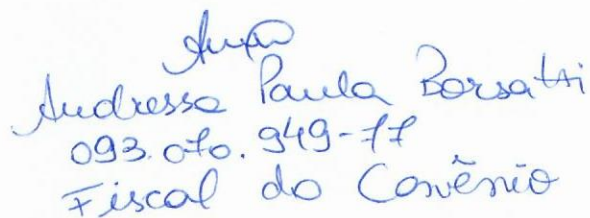 Andressa Paula Borsatti
093.070.949-77
Fiscal do Convênio